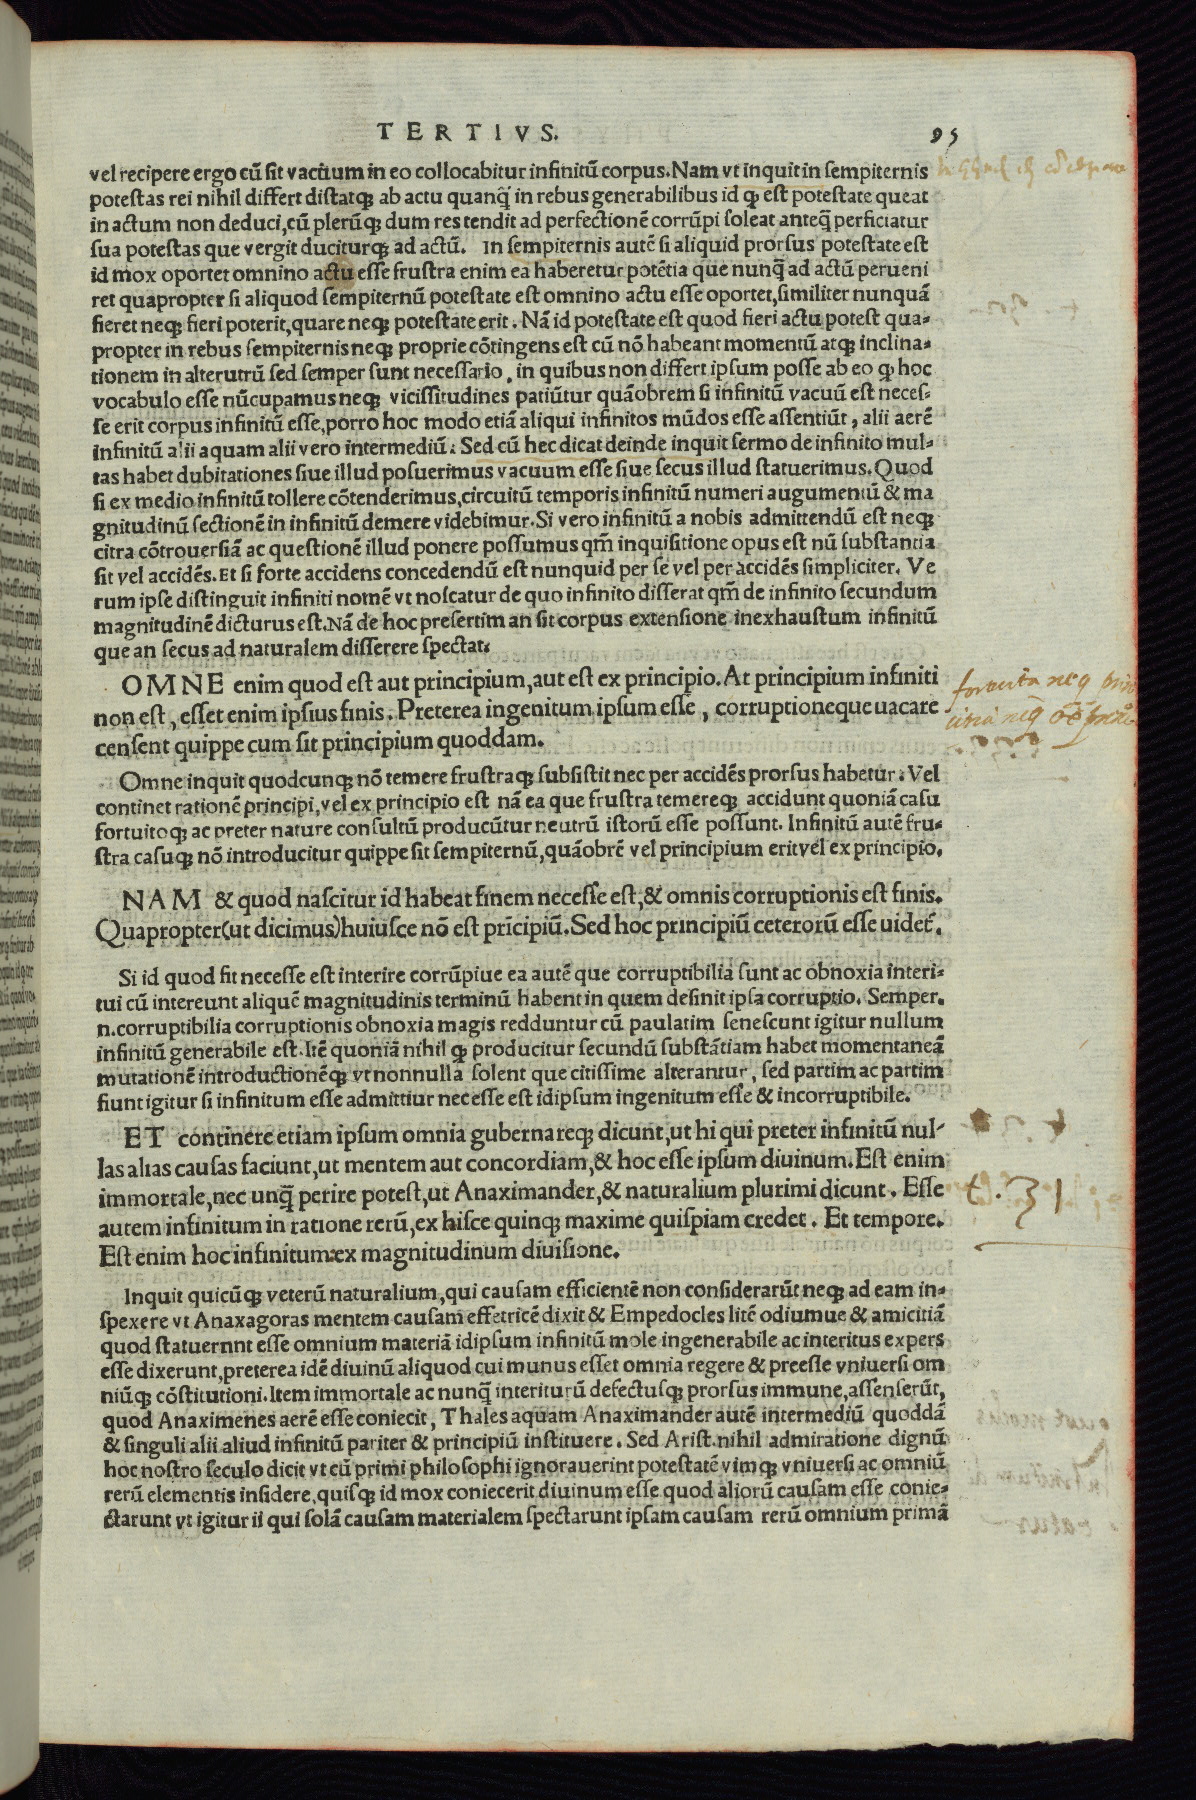 TERTIVS.
95
vel recipere ergo cū sit vacuum in eo collocabitur infinitū corpus. Nam vt inquit in sempiternis
potestas rei nihil differt distatq; ab actu quanq̄ in rebus generabilibus id q; est potestate queat
in actum non deduci, cū plerūq; dum res tendit ad perfectionē corrūpi soleat anteq̄ perficiatur
sua potestas que vergit duciturq; ad actū. In sempiternis autē si aliquid prorsus potestate est
id mox oportet omnino actu esse frustra enim ea haberetur potētia que nunq̄ ad actū perueni
ret quapropter si aliquod sempiternū potestate est omnino actu esse oportet, similiter nunquā
fieret neq; fieri poterit, quare neq; potestate erit. Nā id potestate est quod fieri actu potest qua-
propter in rebus sempiternis neq; proprie cōtingens est cū nō habeant momentū atq; inclina-
tionem in alterutrū sed semper sunt necessario, in quibus non differt ipsum posse ab eo q; hoc
vocabulo esse nūcupamus neq; vicissitudines patiūtur quāobrem si infinitū vacuū est neces-
se erit corpus infinitū esse, porro hoc modo etiā aliqui infinitos mūdos esse assentiūt, alii aerē
infinitū alii aquam alii vero intermediū. Sed cū hec dicat deinde inquit sermo de infinito mul-
tas habet dubitationes siue illud posuerimus vacuum esse siue secus illud statuerimus. Quod
si ex medio infinitū tollere cōtenderimus, circuitū temporis infinitū numeri augumentū & ma
gnitudinū sectionē in infinitū demere videbimur. Si vero infinitū a nobis admittendū est neq;
citra cōtrouersiā ac questionē illud ponere possumus qm̄ inquisitione opus est nū substantia
sit vel accidēs. Et si forte accidens concedendū est nunquid per se vel per accidēs simpliciter. Ve
rum ipse distinguit infiniti nomē vt noscatur de quo infinito disserat qm̄ de infinito secundum
magnitudinē dicturus est. Nā de hoc presertim an sit corpus extensione inexhaustum infinitū
que an secus ad naturalem disserere spectat.
OMNE enim quod est aut principium, aut est ex principio. At principium infiniti
non est, esset enim ipsius finis. Preterea ingenitum ipsum esse, corruptioneque uacare
censent quippe cum sit principium quoddam.
Omne inquit quodcunq; nō temere frustraq; subsistit nec per accidēs prorsus habetur. Vel
continet rationē principi, vel ex principio est nā ea que frustra temereq; accidunt quoniā casu
fortuitoq; ac preter nature consultū producūtur neutrū istorū esse possunt. Infinitū autē fru-
stra casuq; nō introducitur quippe sit sempiternū, quāobrē vel principium erit vel ex principio.
NAM & quod nascitur id habeat finem necesse est, & omnis corruptionis est finis.
Quapropter (ut dicimus) huiusce nō est prīcipiū. Sed hoc principiū ceterorū esse uidet̄.
Si id quod fit necesse est interire corrūpiue ea autē que corruptibilia sunt ac obnoxia interi-
tui cū intereunt aliquē magnitudinis terminū habent in quem desinit ipsa corruptio. Semper.
n. corruptibilia corruptionis obnoxia magis redduntur cū paulatim senescunt igitur nullum
infinitū generabile est. Itē quoniā nihil q; producitur secundū substātiam habet momentaneā
mutationē introductionēq; vt nonnulla solent que citissime alterantur, sed partim ac partim
fiunt igitur si infinitum esse admittiur necesse est idipsum ingenitum esse & incorruptibile.
ET continere etiam ipsum omnia gubernareq; dicunt, ut hi qui preter infinitū nul-
las alias causas faciunt, ut mentem aut concordiam, & hoc esse ipsum diuinum. Est enim
immortale, nec unq̄ perire potest, ut Anaximander, & naturalium plurimi dicunt. Esse
t. 31
autem infinitum in ratione rerū, ex hisce quinq; maxime quispiam credet. Et tempore.
Est enim hoc infinitum ex magnitudinum diuisione.
Inquit quicūq; veterū naturalium, qui causam efficientē non considerarūt neq; ad eam in-
spexere vt Anaxagoras mentem causam effetricē dixit & Empedocles litē odiumue & amicitiā
quod statuernnt esse omnium materiā idipsum infinitū mole ingenerabile ac interitus expers
esse dixerunt, preterea idē diuinū aliquod cui munus esset omnia regere & preesse vniuersi om
niūq; cōstitutioni. Item immortale ac nunq̄ interiturū defectusq; prorsus immune, assenserūt,
quod Anaximenes aerē esse coniecit, Thales aquam Anaximander autē intermediū quoddā
& singuli alii aliud infinitū pariter & principiū instituere. Sed Arist. nihil admiratione dignū
hoc nostro seculo dicit vt cū primi philosophi ignorauerint potestatē vimq; vniuersi ac omniū
rerū elementis insidere, quisq; id mox coniecerit diuinum esse quod aliorū causam esse conie-
ctarunt vt igitur ii qui solā causam materialem spectarunt ipsam causam rerū omnium primā